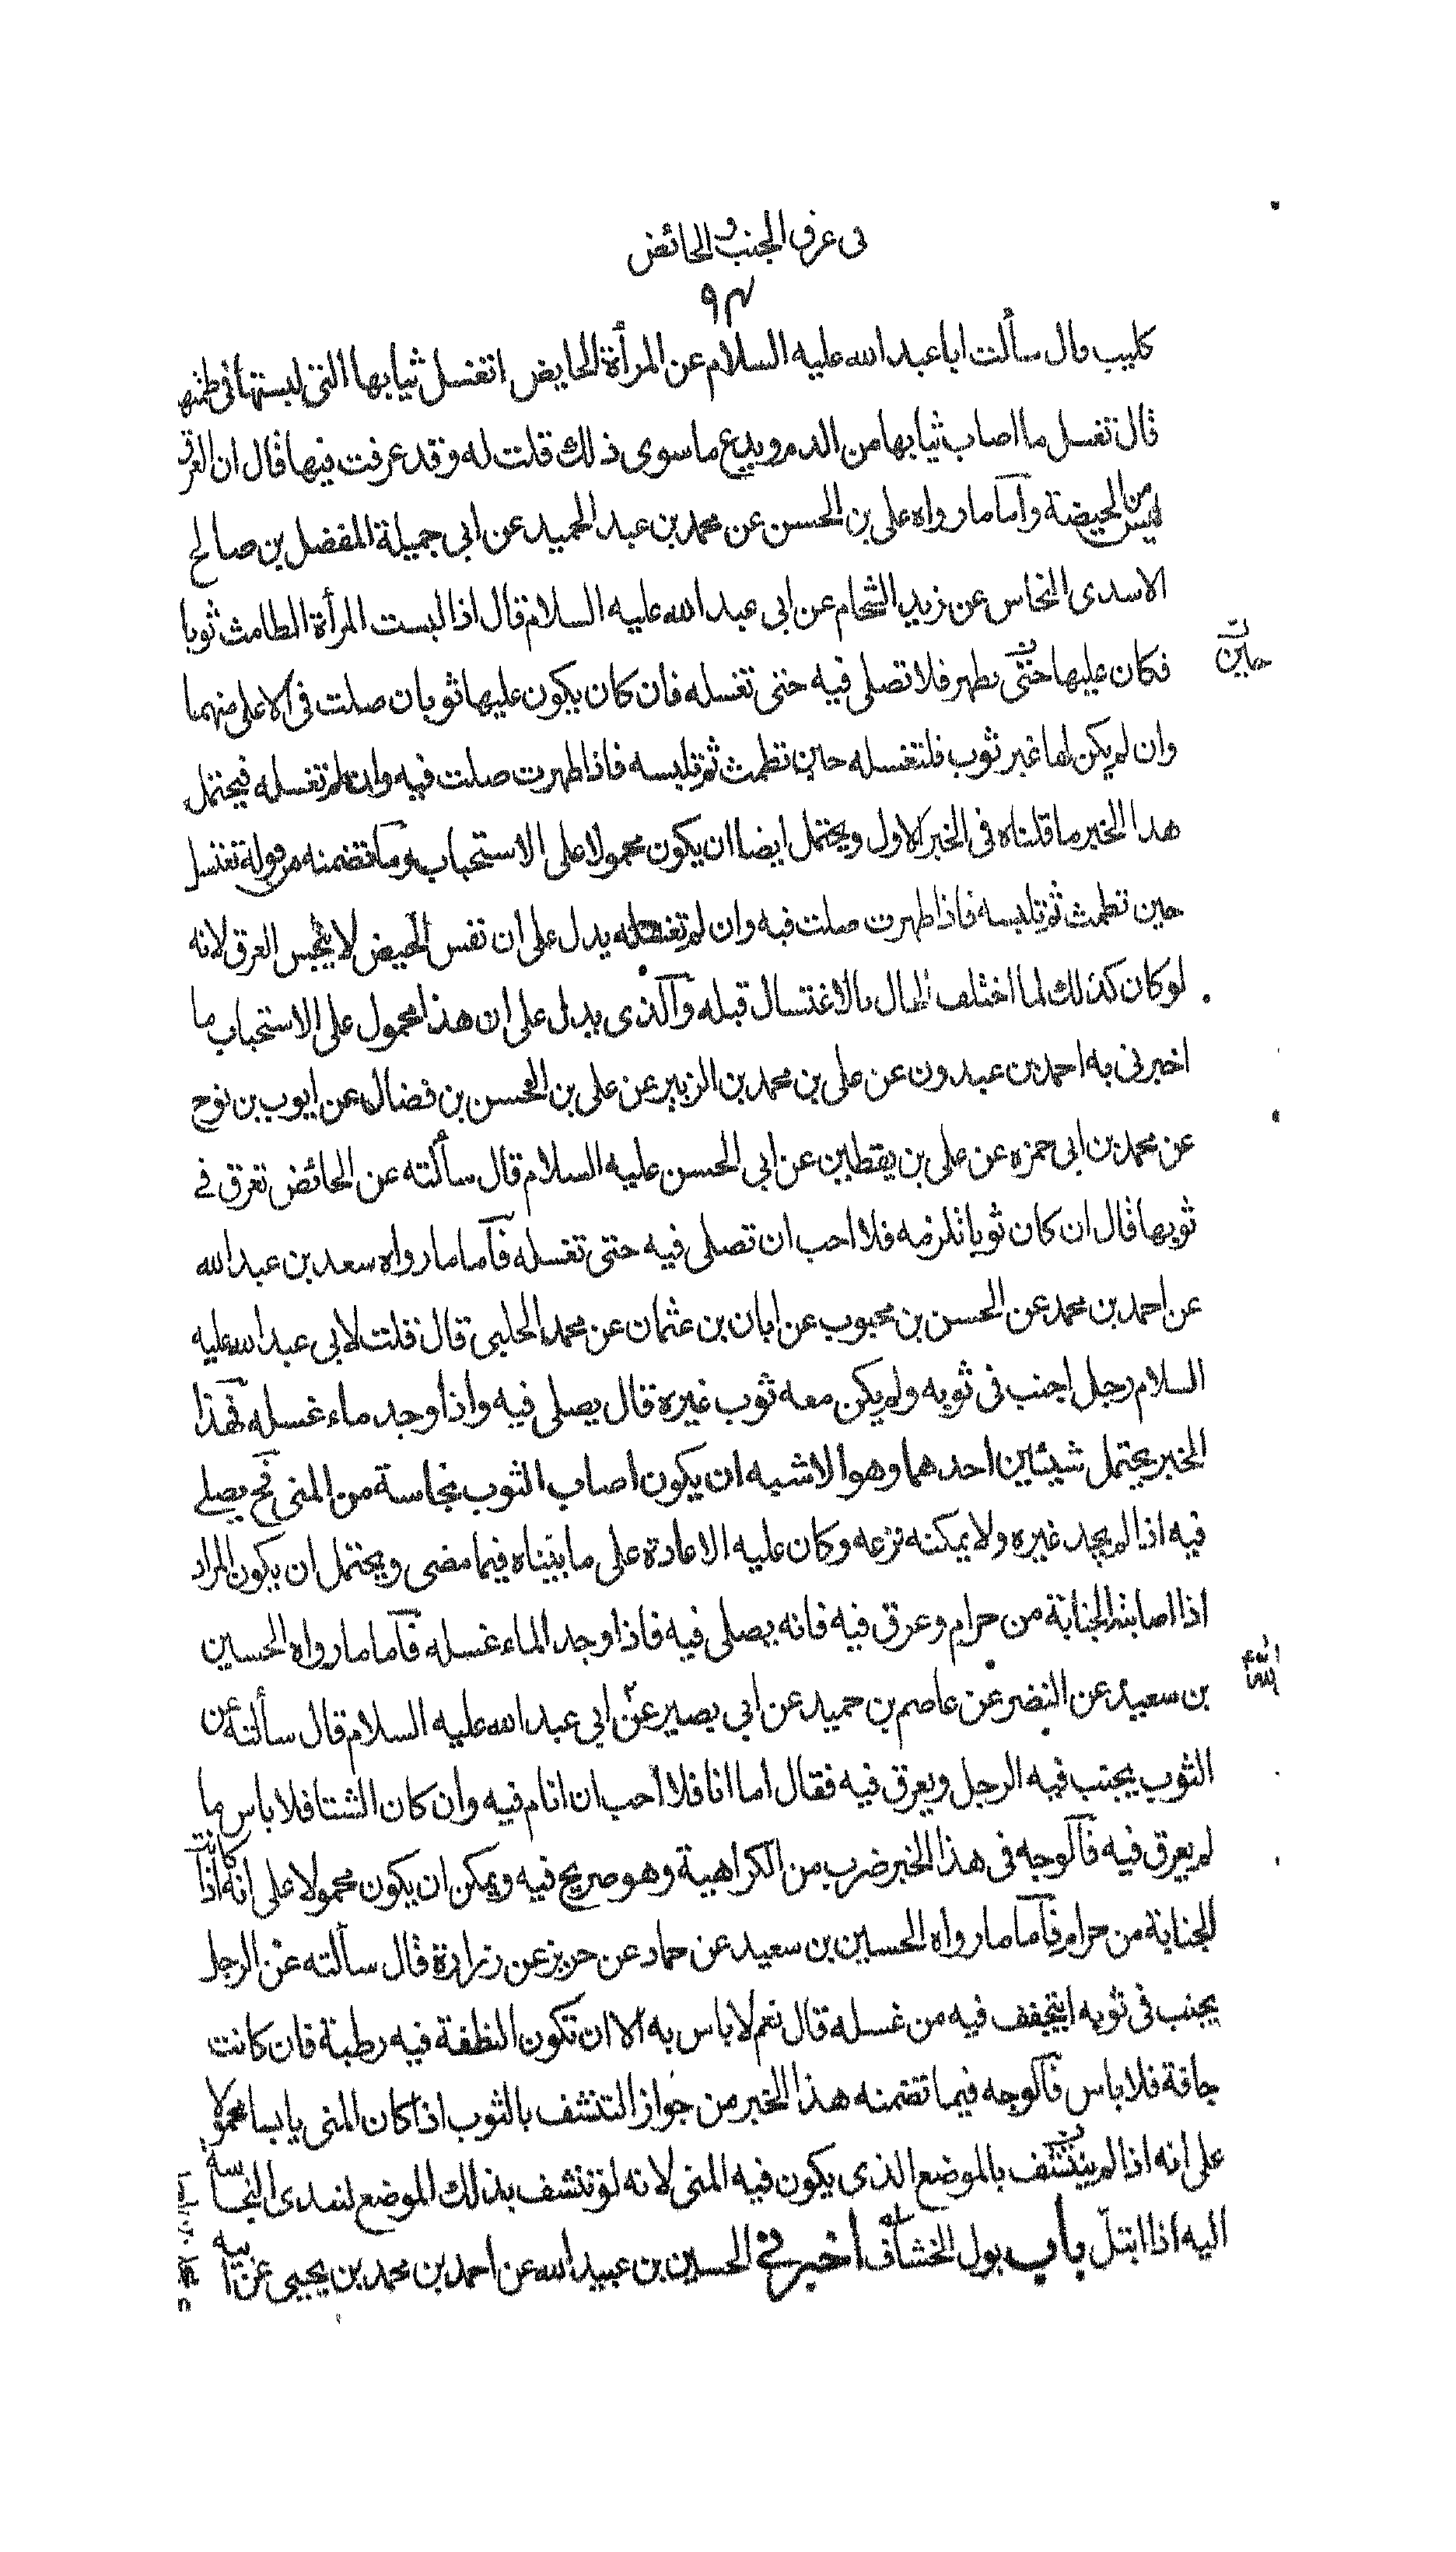 فى عرق الجنب والحائض
٩٣
كليب قال سألت ابا عبد الله عليه السلام عن المرأة الحايض اتغسل ثيابها التى لبستها فى طمثها
قال تغسل ما اصاب ثيابها من الدم ويدع ما سوى ذلك قلت له وقد عرقت فيها قال ان العرق
ليس من الحيضة وأما ما رواه على بن الحسن عن محمد بن عبد الحميد عن ابى جميلة المفضل بن صالح
الاسدى النخاس عن زيد الشحام عن ابى عبد الله عليه السلام قال اذا لبست المرأة الطامث ثوبا
فكان عليها حتى تطهر فلا تصلى فيه حتى تغسله فان كان يكون عليها ثوبان صلت فى الاعلى منهما
حاين
وان لم يكن لها غير ثوب فلتغسله حاين تطمث ثم تلبسه فاذا طهرت صلت فيه وان لم تغسله فيحتمل
هذا الخبر ما قلناه فى الخبر الاول ويحتمل ايضا ان يكون محمولا على الاستحباب وما تضمنه من قوله تغتسل
حين تطمث ثم تلبسه فاذا طهرت صلت فيه وان لم تغسله يدل على ان نفس الحيض لا ينجس العرق لانه
لو كان كذلك لما اختلف الحال بالاغتسال قبله والذى يدل على ان هذا محمول على الاستحباب ما
اخبرنى به احمد بن عبدون عن على بن محمد بن الزبير عن على بن الحسن بن فضال عن ايوب بن نوح
عن محمد بن ابى حمزه عن على بن يقطين عن ابى الحسن عليه السلام قال سألته عن الحائض تعرق فى
ثوبها قال ان كان ثوبا تلزمه فلا احب ان تصلى فيه حتى تغسله فأما ما رواه سعد بن عبد الله
عن احمد بن محمد عن الحسن بن محبوب عن ابان بن عثمان عن محمد الحلبى قال قلت لابى عبد الله عليه
السلام رجل اجنب فى ثوبه ولم يكن معه ثوب غيره قال يصلى فيه واذا وجد ماء غسله فهذا
الخبر يحتمل شيئاين احدهما وهو الاشبه ان يكون اصاب الثوب نجاسة من المنى فح يصلى
فيه اذا لم يجد غيره ولا يمكنه نزعه وكان عليه الاعادة على ما بيّناه فيما مضى ويحتمل ان يكون المراد
اذا اصابته الجنابة من حرام وعرق فيه فانه يصلى فيه فاذا وجد الماء غسله فأما ما رواه الحسين
بن سعيد عن النضر عن عاصم بن حميد عن ابى بصير عن ابى عبد الله عليه السلام قال سألته عن
الثوب يجنب فيه الرجل ويعرق فيه فقال اما انا فلا أحب ان انام فيه وان كان الشتا فلا باس ما
لم يعرق فيه فالوجه فى هذا الخبر ضرب من الكراهية وهو صريح فيه ويمكن ان يكون محمولا على انه اذا كانت
الجنابة من حرام فأما ما رواه الحسين بن سعيد عن حماد عن حريز عن زرارة قال سألته عن الرجل
يجنب فى ثوبه ايتجفف فيه من غسله قال نعم لا باس به الا ان تكون النطفة فيه رطبة فان كانت
جافة فلا باس فالوجه فيما تضمنه هذا الخبر من جواز التنشف بالثوب اذا كان المنى يابسا محمولا
على انه اذا لم يتنشف بالموضع الذى يكون فيه المنى لانه لو تنشف بذلك الموضع لتعدى النجاسة
اليه اذا ابتلّ باب بول الخشاف اخبرنى الحسين بن عبيد الله عن احمد بن محمد بن يحيى عن ابيه